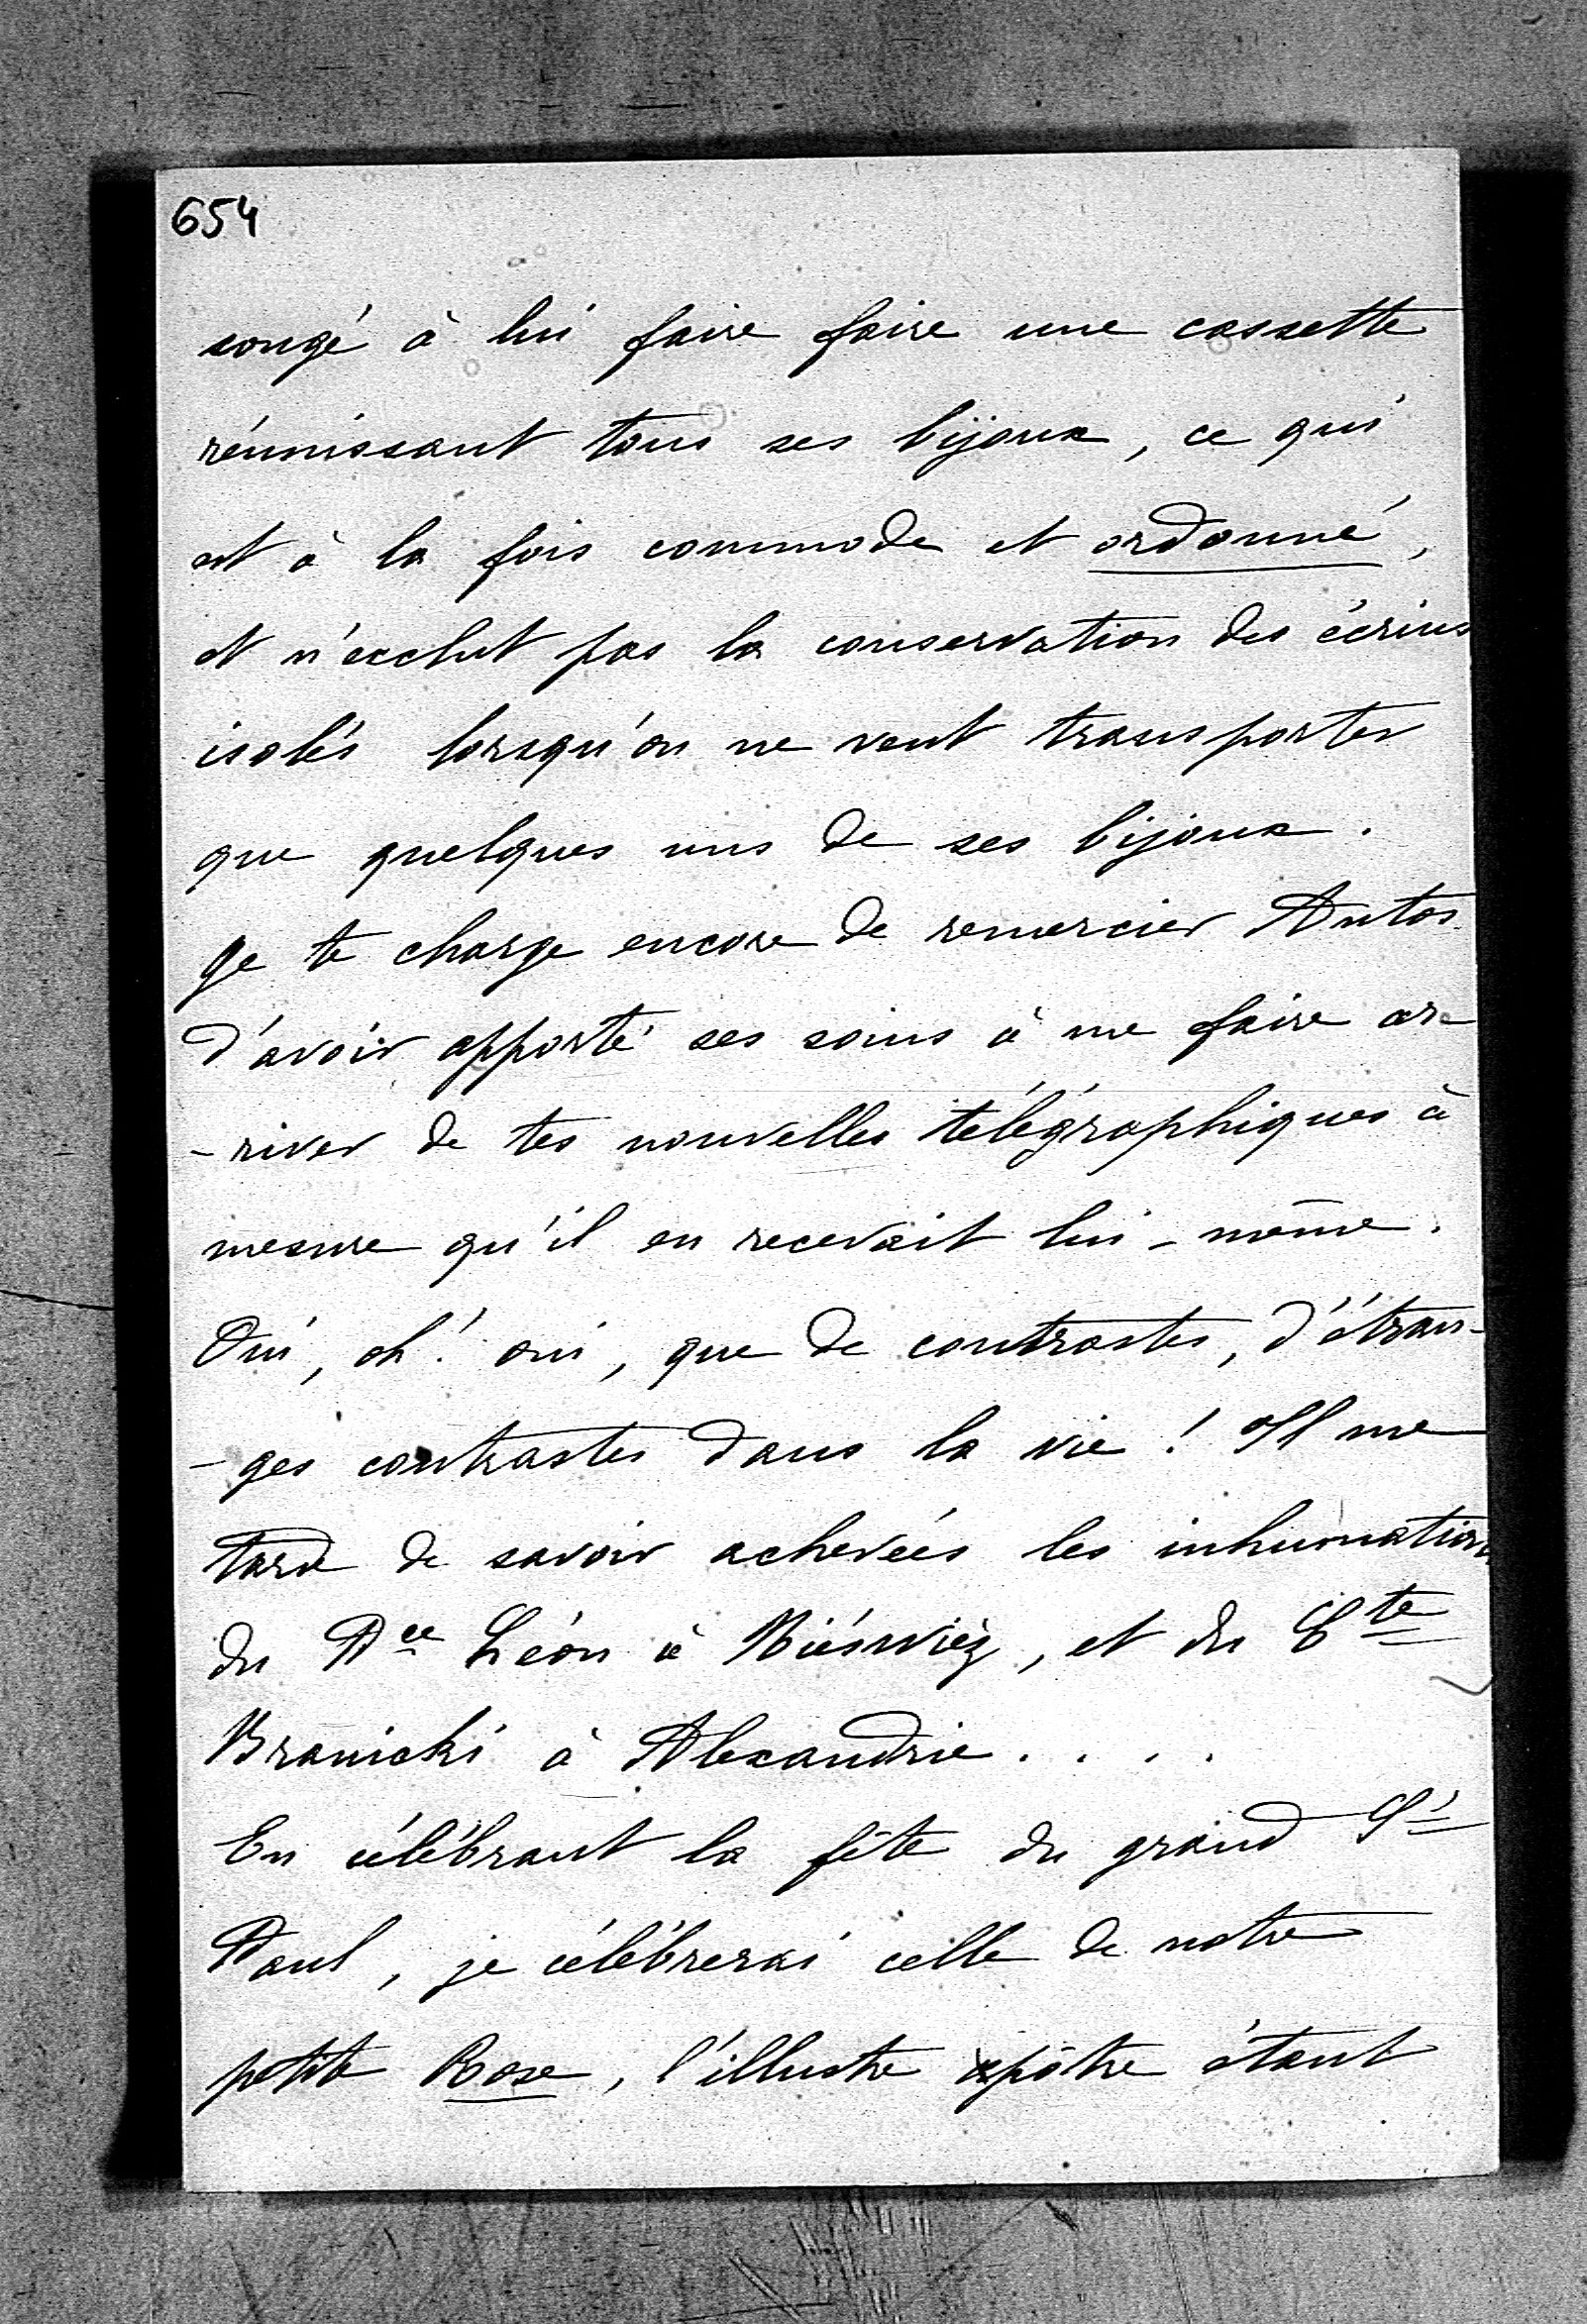 654
songé à lui faire faire une cassette
réunissant tous ses bijoux, ce qui
est à la fois commode et ordonné,
et n'exclut pas la conservation des écrins
isolés lorsqu'on ne veut transporter
que quelques uns de ses bijoux.
Je te charge encore de remercier Antos
d'avoir apporté ses soins à me faire ar-
-river de tes nouvelles télégraphiques à
mesure qu'il en recevait lui-même.
Oui, oh! oui, que de contrastes, d'étran-
-ges contrastes dans la vie! Il me
tarde de savoir achevées les inhumations
du Pce Léon à Niéswież, et du Cte
Branicki à Alexandrie....
En célébrant la fête du grand St
Paul, je célébrerai celle de notre
petite Rose, l'illustre apôtre étant